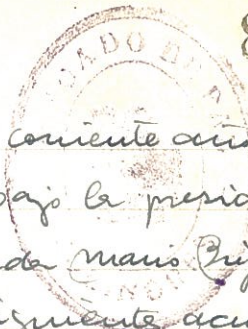 GADO DE
corriente año
bajo la presid
da Mario Bu
siguiente acu